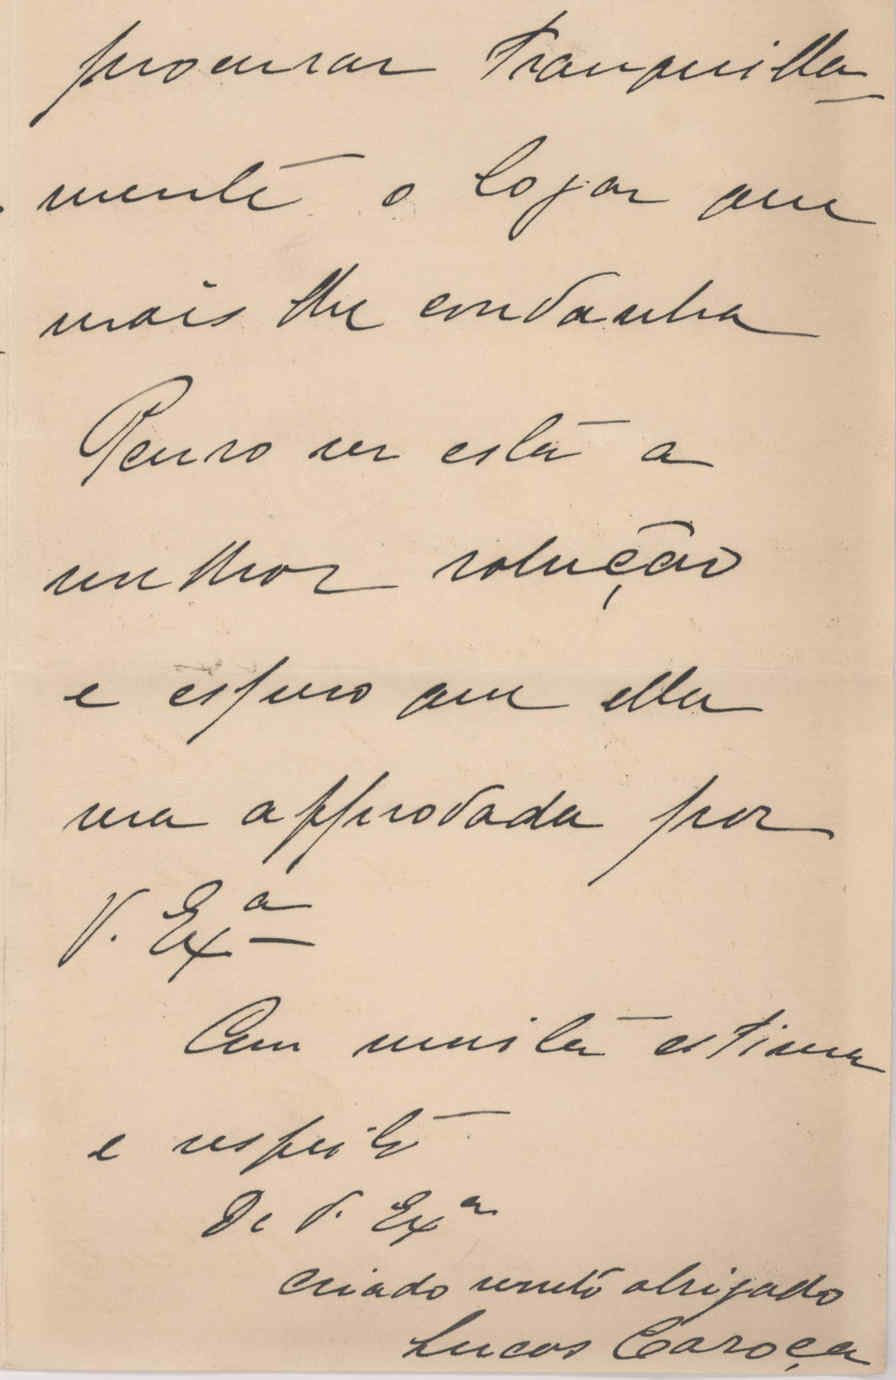 procurar tranquilla-
mente o logar que
mais lhe convenha
Penso ser esta a
melhor solução
e espero que ella
seja approvada por
V. Exª
Com muita estima
e respeito
De V. Exª
criado muito obrigado
Lucas Caroça